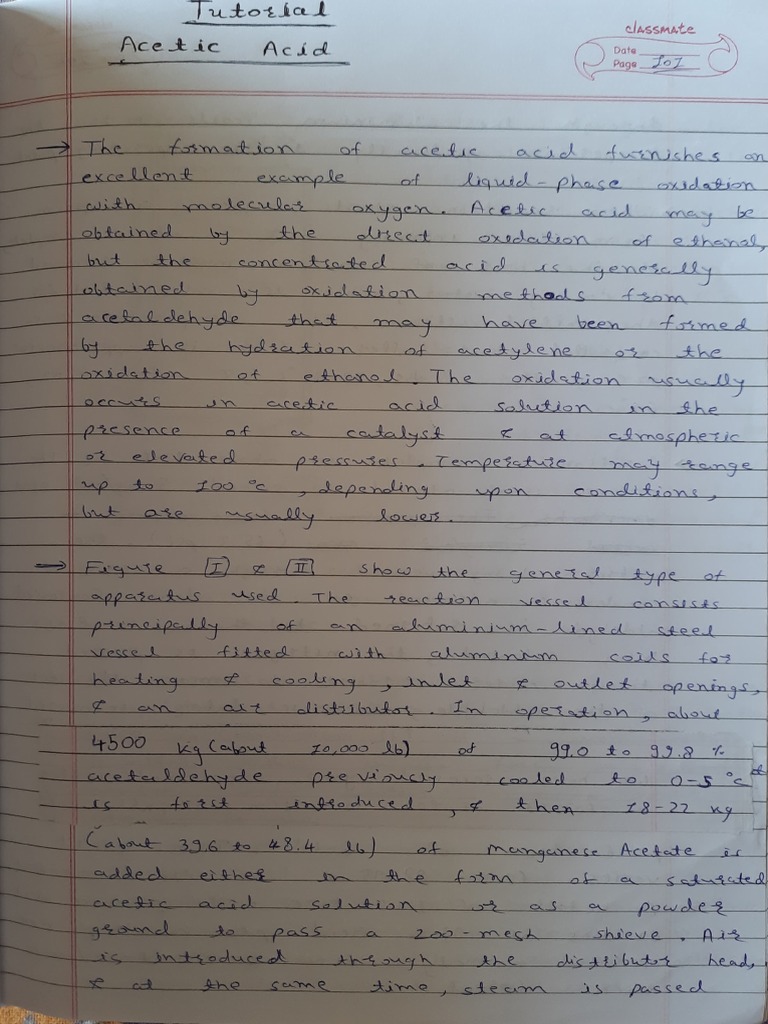 Tutorial
Acetic Acid
classmate
Date
Page 101
→ The formation of acetic acid furnishes an
excellent example of liquid-phase oxidation
with molecular oxygen. Acetic acid may be
obtained by the direct oxidation of ethanol,
but the concentrated acid is generally
obtained by oxidation methods from
acetaldehyde that may have been formed
by the hydration of acetylene or the
oxidation of ethanol. The oxidation usually
occurs in acetic acid solution in the
presence of a catalyst & at atmospheric
or elevated pressures. Temperature may range
up to 100 °c, depending upon conditions,
but are usually lower.
→ Figure I & II show the general type of
apparatus used. The reaction vessel consists
principally of an aluminium-lined steel
vessel fitted with aluminium coils for
heating & cooling, inlet & outlet openings,
& an air distributor. In operation, about
4500 kg (about 10,000 lb) of 99.0 to 99.8 %
acetaldehyde previously cooled to 0-5 °c
is first introduced, & then 18-22 kg
(about 39.6 to 48.4 lb) of manganese Acetate is
added either in the form of a saturated
acetic acid solution or as a powder
ground to pass a 200-mesh shieve. Air
is introduced through the distributor head,
& at the same time, steam is passed